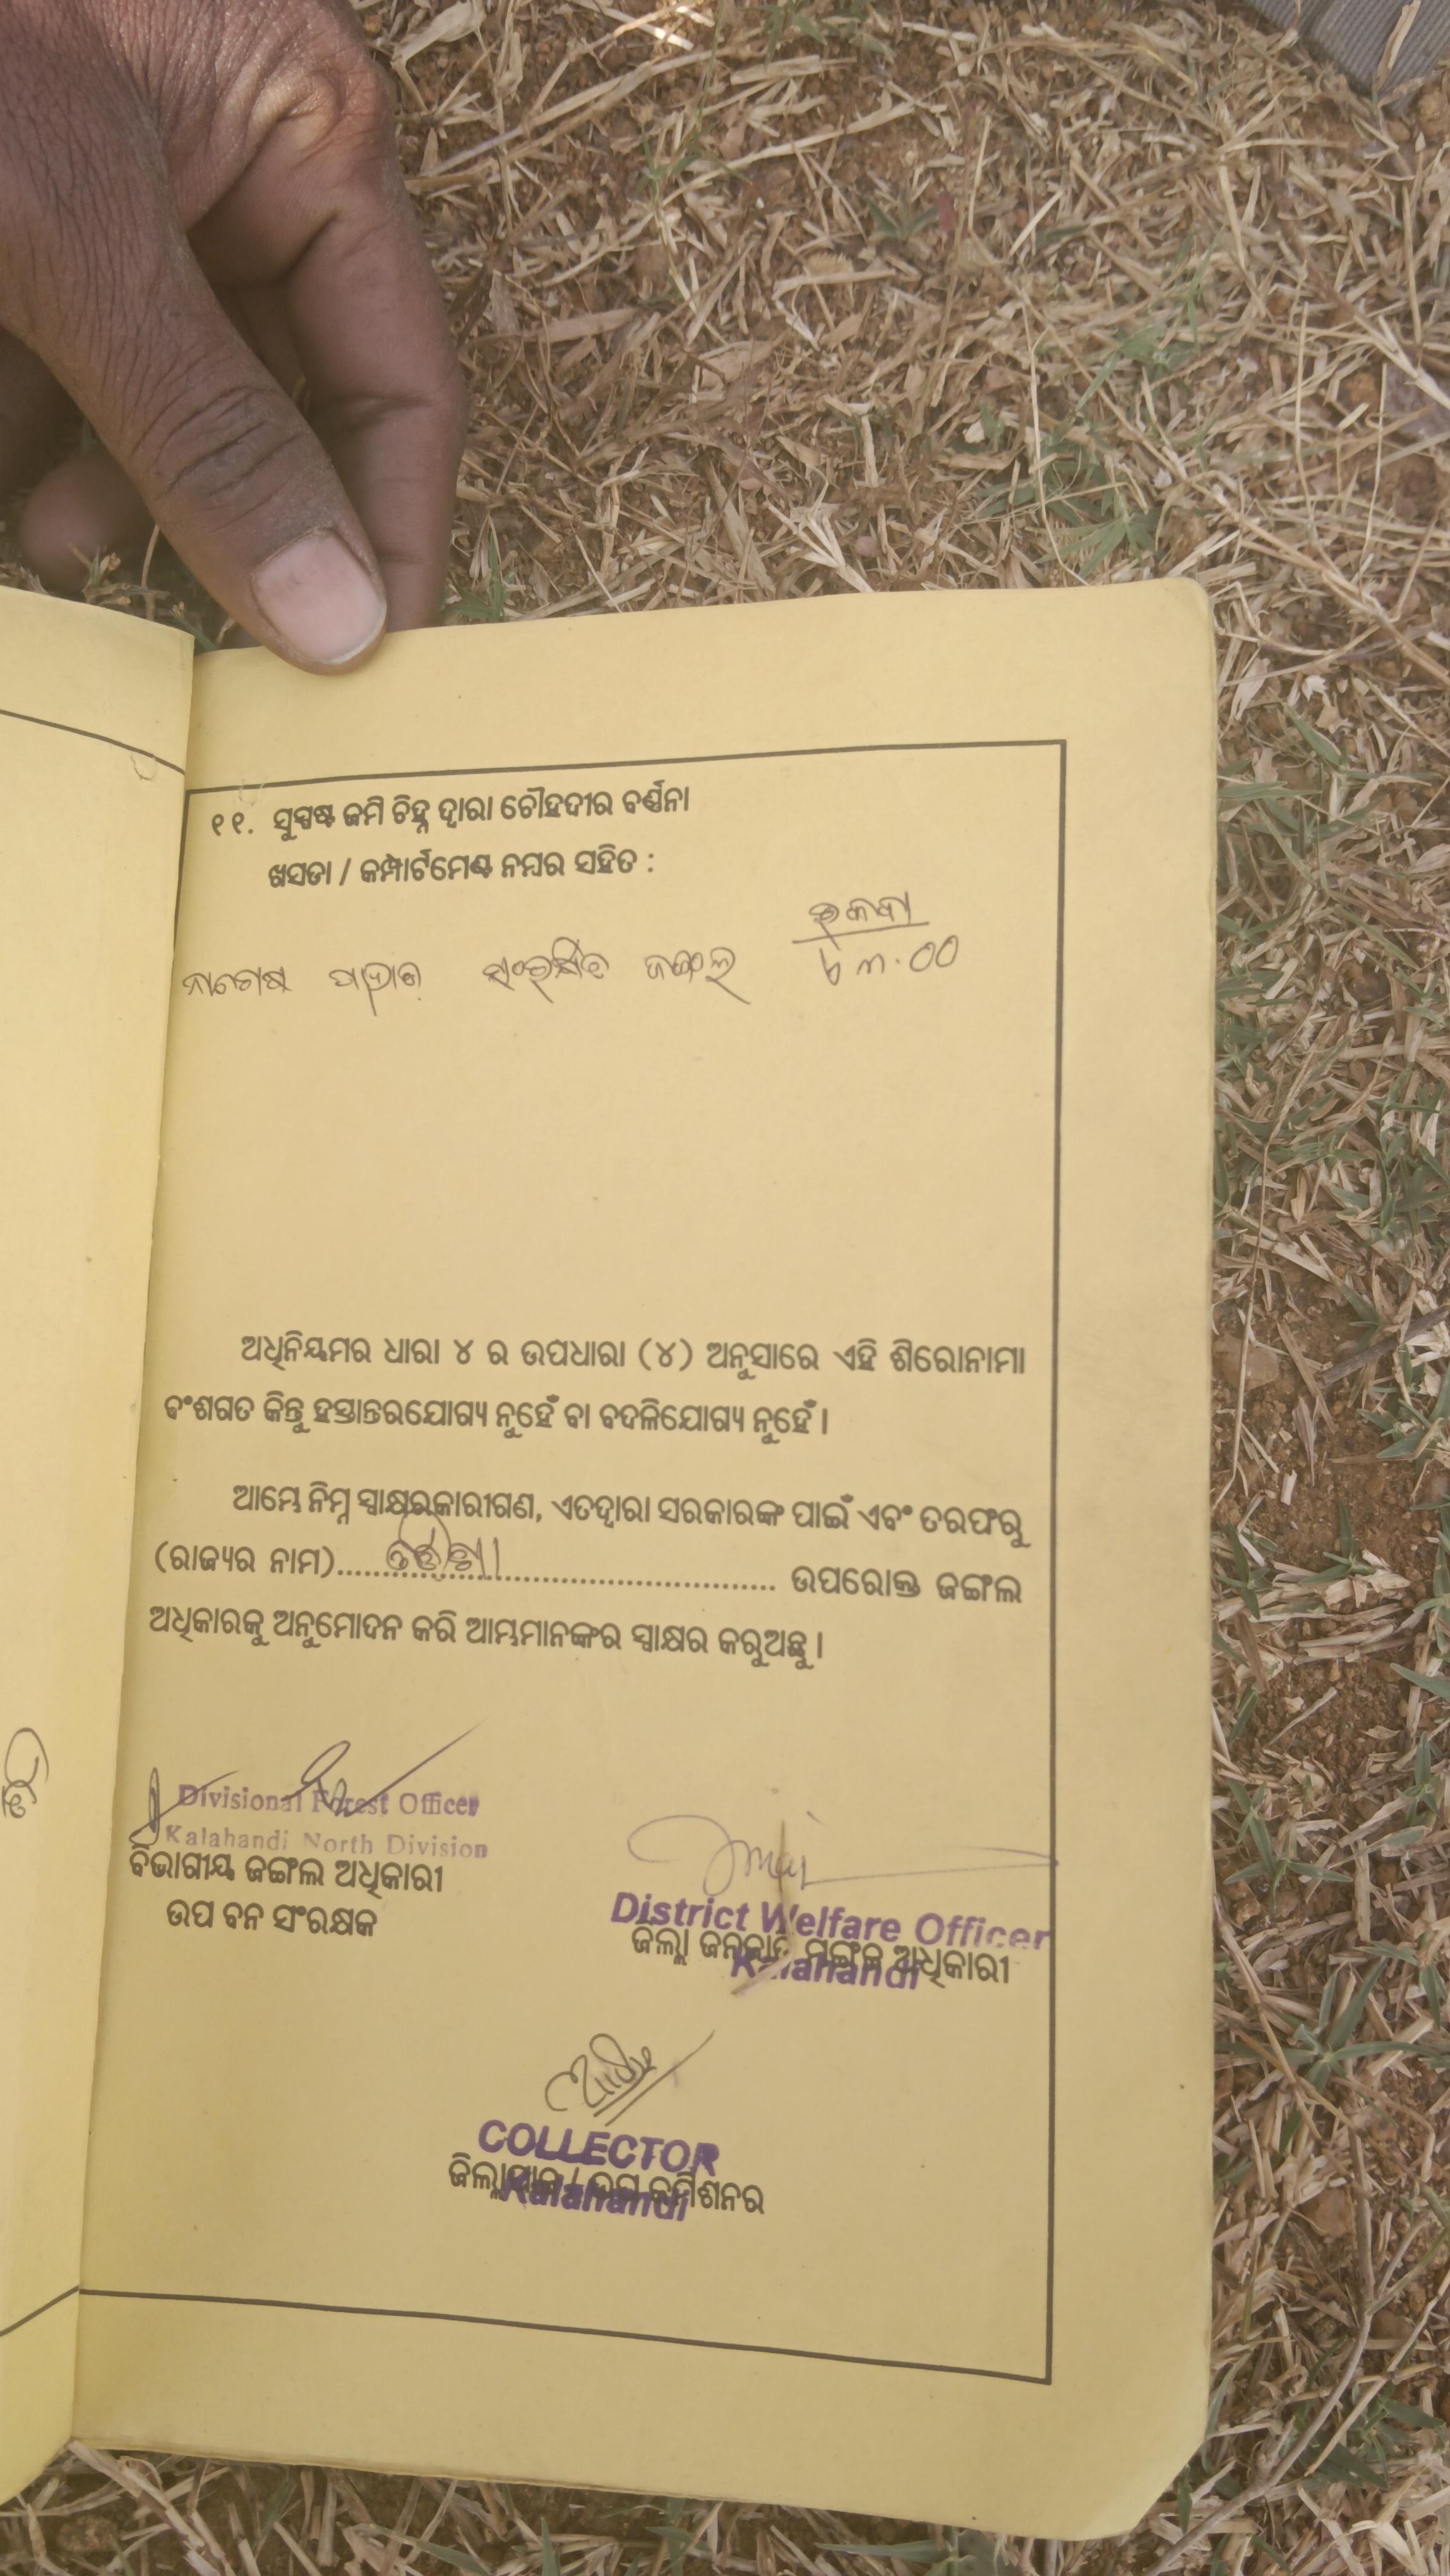 ୧୧. ସୁସ୍ପଷ୍ଟ ଜମି ଚିହ୍ନ ଦ୍ୱାରା ଚୌହଦୀର ବର୍ଣ୍ଣନା
ଖସଡା / କମ୍ପାର୍ଟମେଣ୍ଟ ନମ୍ବର ସହିତ :
ରକବା
ସଂରକ୍ଷିତ ଜଙ୍ଗଲ
ଅଧିନିୟମର ଧାରା ୪ ର ଉପଧାରା (୪) ଅନୁସାରେ ଏହି ଶିରୋନାମା
ବଂଶଗତ କିନ୍ତୁ ହସ୍ତାନ୍ତରଯୋଗ୍ୟ ନୁହେଁ ବା ବଦଳିଯୋଗ୍ୟ ନୁହେଁ ।
ଆମ୍ଭେ ନିମ୍ନ ସ୍ୱାକ୍ଷରକାରୀଗଣ, ଏତଦ୍ୱାରା ସରକାରଙ୍କ ପାଇଁ ଏବଂ ତରଫରୁ
(ରାଜ୍ୟର ନାମ)........ ଓଡ଼ିଶା ........ ଉପରୋକ୍ତ ଜଙ୍ଗଲ
ଅଧିକାରକୁ ଅନୁମୋଦନ କରି ଆମ୍ଭମାନଙ୍କର ସ୍ୱାକ୍ଷର କରୁଅଛୁ ।
Divisional Forest Officer
Kalahandi North Division
ବିଭାଗୀୟ ଜଙ୍ଗଲ ଅଧିକାରୀ
ଉପ ବନ ସଂରକ୍ଷକ
District Welfare Officer
ଜିଲ୍ଲା ଜନଜାତି ମଙ୍ଗଳ ଅଧିକାରୀ
Kalahandi
COLLECTOR
ଜିଲ୍ଲାପାଳ / ଉପ କମିଶନର
Kalahandi